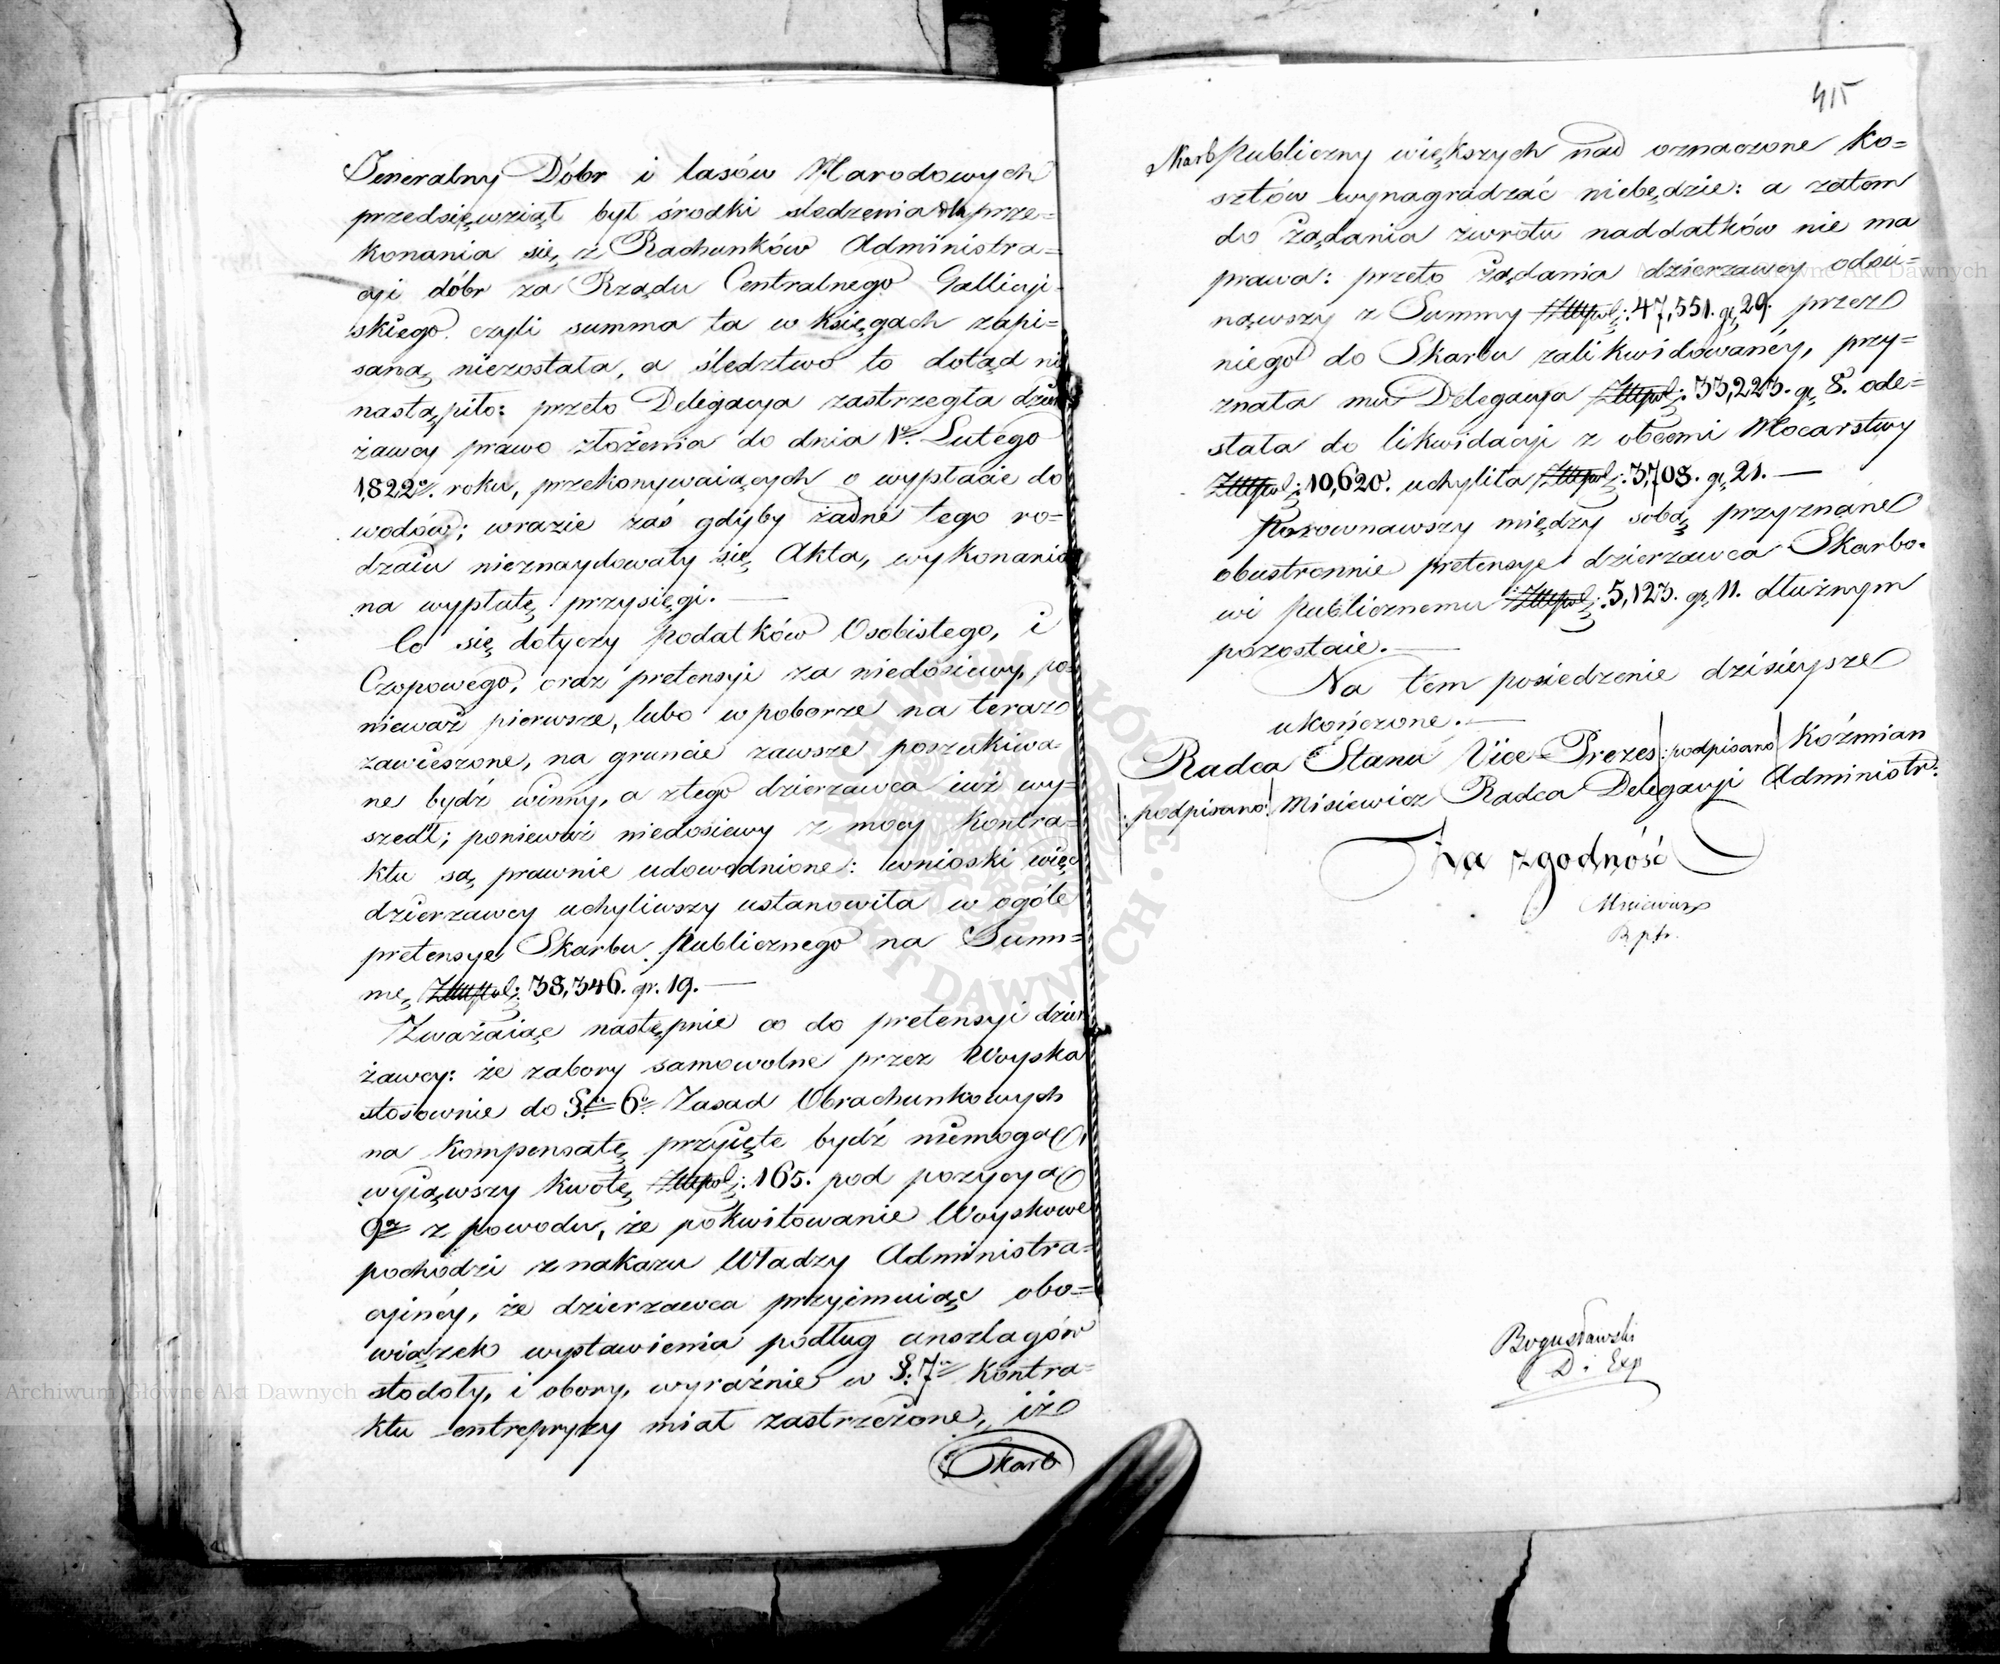 Jeneralny Dóbr i lasów Narodowych
przedsięwziąt był środki śledzenia dla prze=
konania się, z Rachunków Administra=
cyi dóbr za Rządu Centralnego Gallicyi=
skiego czyli summa ta w księgach zapi=
saną niezostała, a śledztwo to dotąd nie
nastąpiło: przeto Delegacya zastrzegła dzier
żawcy prawo złożenia do dnia 1go. Lutego
1822go. roku, przekonywaiących o wypłacie do
wodów; wrazie zaś gdyby żadne tego ro=
dzaiu nieznaydowały się Akta, wykonania
na wypłatę przysięgi.—
Co się dotyczy podatków Osobistego, i
Czopowego, oraz pretensyi za niedosiewy, po=
nieważ pierwsze, lubo w poborze na teraz
zawieszone, na gruncie zawsze poszukiwa=
ne bydź winny, a ztego dzierzawca iuż wy=
szedł; ponieważ niedosiewy z mocy Kontra=
ktu są prawnie udowodnione: wnioski więc
dzierzawcy uchyliwszy ustanowiła w ogóle
pretensye Skarbu Publicznego na Sum=
mę Złtpol: 38,346. gr. 19.—
Zważaiąc następnie co do pretensyi dzier
żawcy: że zabory samowolne przez Woyska
stosownie do §fu 6o Zasad Obrachunkowych
na kompensatę przyięte bydź niemogą,
wyiąwszy kwotę Złtpol: 165. pod pozycyą
9ą z powodu, że pokwitowanie Woyskowe
pochodzi z nakazu Władzy Administra=
cyinéy, że dzierzawca przyimuiąc obo=
wiązek wystawienia podług anszlagów
stodoły, i obory, wyraźnie w §. 7m Kontra=
ktu entrepryzy miał zastrzeżone, iż
Skarb
415
Skarb Publiczny większych nad oznaczone ko=
sztów wynagradzać niebędzie: a zatem
do żądania zwrotu naddatków nie ma
prawa: przeto żądania dzierzawcy odsu=
nąwszy z Summy Złtpol: 47,551. gr. 29. przez
niego do Skarbu zalikwidowanéy, przy=
znała mu Delegacya Złtpol: 33,223. gr. 8. ode=
słała do likwidacyi z obcemi Mocarstwy
Złtpol: 10,620. uchyliła Złtpol: 3,708. gr. 21.—
Porównawszy między sobą przyznane
obustronnie pretensye dzierzawca Skarbo=
wi Publicznemu Złtpol: 5,123. gr. 11. dłużnym
pozostaie.—
Na tém posiedzenie dzisieysze
ukończone.—
Radca Stanu Vice-Prezes /:podpisano:/ Koźmian
/:podpisano:/ Misiewicz Radca Delegacyi Administr:
Za zgodność
Misiewicz
Bogusławski
D: Exp
Archiwum Główne Akt Dawnych
Archiwum Główne Akt Dawnych
ARCHIWUM GŁÓWNE AKT DAWNYCH